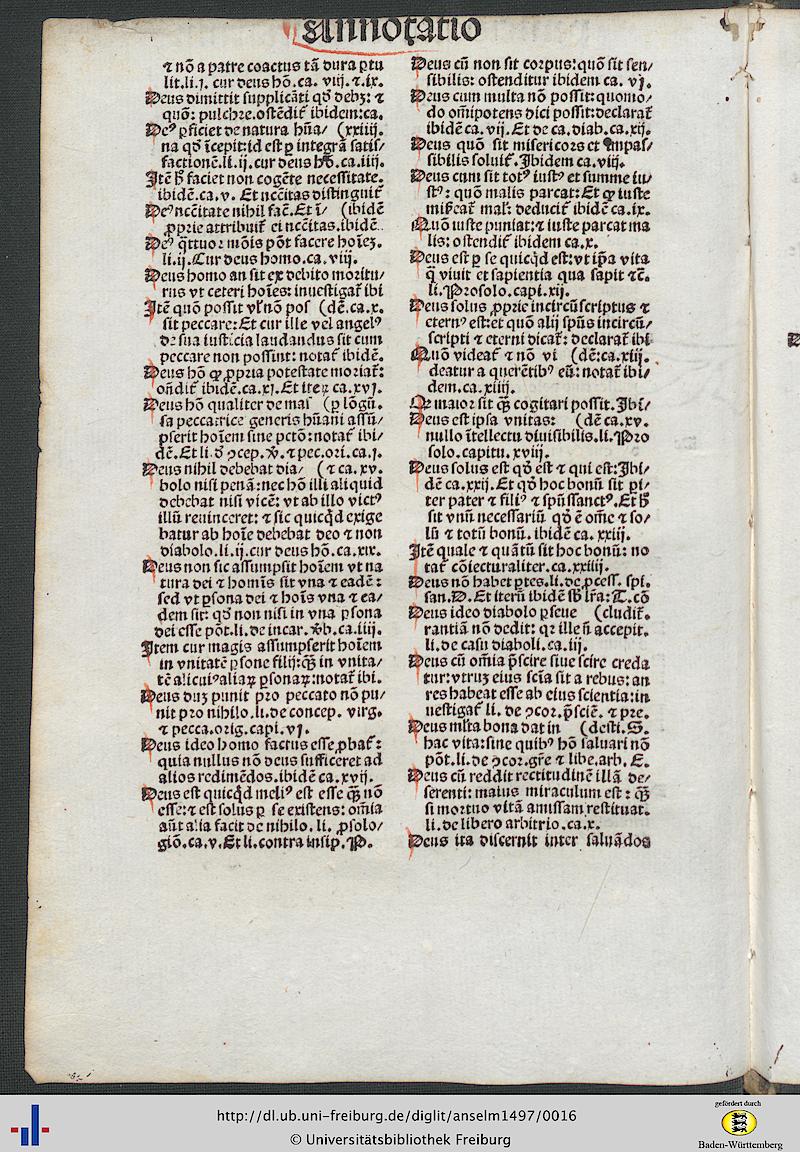 Annotatio
⁊ nō a patre coactus tā dura ꝑtu
lit.li.j. cur deus hō.ca. viij. ⁊.ix.
Deus dimittit supplicāti qḋ debꝫ: ⁊
quō: pulchre.ostēdit̄ ibidem:ca.
Deꝰ ꝑficiet de natura hūa/ (xxiiij.
na qḋ īcepit:id est ꝑ integrā satis/
factionē.li.ij.cur deus hō.ca.iiij.
Itē ħ faciet non cogēte necessitate.
ibidē.ca.v. Et nccītas distinguit̄
Deꝰ nccītate nihil facē.Et ī/ (ibidē
ꝓprie attribuit̄ ei nccītas.ibidē.
Deꝰ q̄ttuor mōis pōt facere hoīeꝫ.
li.ij.Cur deus homo.ca.viij.
Deus homo an sit ex debito moritu/
rus vt ceteri hoīes: inuestigat̄ ibi
Itē quō possit vl̄ nō pos (dē.ca.x.
sit peccare:Et cur ille vel angelꝰ
de sua iusticia laudandus sit cum
peccare non possint: notat̄ ibidē.
Deus hō ꝙ ꝓpria potestate moriat̄:
oñdit̄ ibidē.ca.xj.Et iteꝝ ca.xvj.
Deus hō qualiter de mas (ꝑ lōgū.
sa peccatrice generis hūani assu/
pserit hoīem sine pctō:notat̄ ibi/
dē.Et li.ḋ ꝯcep.v̄.⁊ pec.ori.ca.j.
Deus nihil debebat dia/ (⁊ ca.xv.
bolo nisi penā:nec hō illi aliquid
debebat nisi vicē: vt ab illo victꝰ
illū reuinceret: ⁊ sic quicq̇d exige
batur ab hoīe debebat deo ⁊ non
diabolo.li.ij.cur deus hō.ca.xix.
Deus non sic assumpsit hoīem vt na
tura dei ⁊ homīs sit vna ⁊ eadē:
sed vt ꝑsona dei ⁊ hoīs vna ⁊ ea/
dem sit: qḋ non nisi in vna ꝑsona
dei esse pōt.li.de incar. v̄b.ca.iiij.
Item cur magis assumpserit hoīem
in vnitatē ꝑsone filij:q̄ꝫ in vnita/
tē alicuiꝰ aliaꝝ ꝑsonaꝝ:notat̄ ibi.
Deus duꝫ punit pro peccato nō pu/
nit pro nihilo.li.de concep. virg.
⁊ pecca.orig.capi.vj.
Deus ideo homo factus esse ꝓbat̄:
quia nullus nō deus sufficeret ad
alios redimēdos.ibidē ca.xvij.
Deus est quicq̇d meliꝰ est esse q̄ꝫ nō
esse:⁊ est solus ꝑ se existens: oīmia
aūt alia facit de nihilo. li. ꝓsolo/
giō.ca.v.Et li.contra insip. P.
Deus cū non sit corpus:quō sit sen/
sibilis: ostenditur ibidem ca. vj.
Deus cum multa nō possit: quomo/
do oīmipotens dici possit:declarat̄
ibidē ca. vij. Et de ca.diab.ca.xij.
Deus quō sit misericors et impas/
sibilis soluit̄. Ibidem ca.viij.
Deus cum sit totꝰ iustꝰ et summe iu/
stꝰ: quō malis parcat: Et ꝙ iuste
mis̄eat̄ mal̄: deducit̄ ibidē ca.ix.
Quō iuste puniat:⁊ iuste parcat ma
lis: ostendit̄ ibidem ca.x.
Deus est ꝑ se quicq̇d est:vt ip̄a vita
q̄ viuit et sapientia qua sapit ⁊c̄.
li.Prosolo.capi.xij.
Deus solus ꝓprie incircūscriptus ⁊
eternꝰ est:et quō alij sp̄us incircū/
scripti ⁊ eterni dicat̄: declarat̄ ibi
Quō videat̄ ⁊ nō vi (dē:ca.xiij.
deatur a querētibꝰ eū: notat̄ ibi/
dem.ca.xiiij.
Qr maior sit q̄ꝫ cogitari possit.Ibi/
Deus est ipsa vnitas: (dē ca.xv.
nullo ītellectu diuisibilis.li.Pro
solo.capitu.xviij.
Deus solus est qḋ est ⁊ qui est:Ibi/
dē ca.xxij.Et qḋ hoc bonū sit pi/
ter pater ⁊ filiꝰ ⁊ spūssanctꝰ.Et ħ
sit vnū necessariū qḋ ē oīmē ⁊ so/
lū ⁊ totū bonū. ibidē ca. xxiij.
Itē quale ⁊ quātū sit hoc bonū: no
tat̄ cōiecturaliter.ca.xxiiij.
Deus nō habet ꝑtes.li.de ꝓcess. spi.
san.D.Et iterū ibidē sb̄ lr̄a:T.cō
Deus ideo diabolo ꝑseue (cludit̄.
rantiā nō dedit: qr ille ñ accepit.
li.de casu diaboli.ca.iij.
Deus cū oīmia p̄scire siue scire creda
tur:vtruꝫ eius scīa sit a rebus: an
res habeat esse ab eius scientia:in
uestigat̄ li. de ꝯcor.p̄sciē. ⁊ pre.
Deus ml̄ta bona dat in (desti.S.
hac vita:sine quibꝰ hō saluari nō
pōt.li.de ꝯcor.gr̄e ⁊ libe.arb. E.
Deus cū reddit rectitudinē illā de/
serenti: maius miraculum est : q̄ꝫ
si mortuo vitā amissam restituat.
li.de libero arbitrio.ca.x.
Deus ita discernit inter saluādos
http://dl.ub.uni-freiburg.de/diglit/anselm1497/0016
© Universitätsbibliothek Freiburg
gefördert durch
Baden-Württemberg